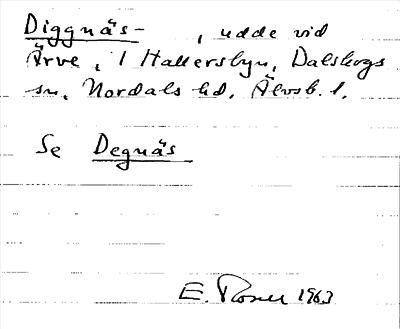 Diggnäs- , udde vid
Ärve, i Hallersbyn, Dalskogs
sn, Nordals hd, Älvsb. l.
Se Degnäs
E. Rosen 1963